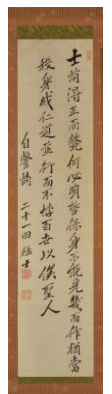 士苟得正而斃何必明哲保身不能見幾而作猶當
殺身成仁道並行而不悖百世以俟聖人
自警詩 二十一回猛士